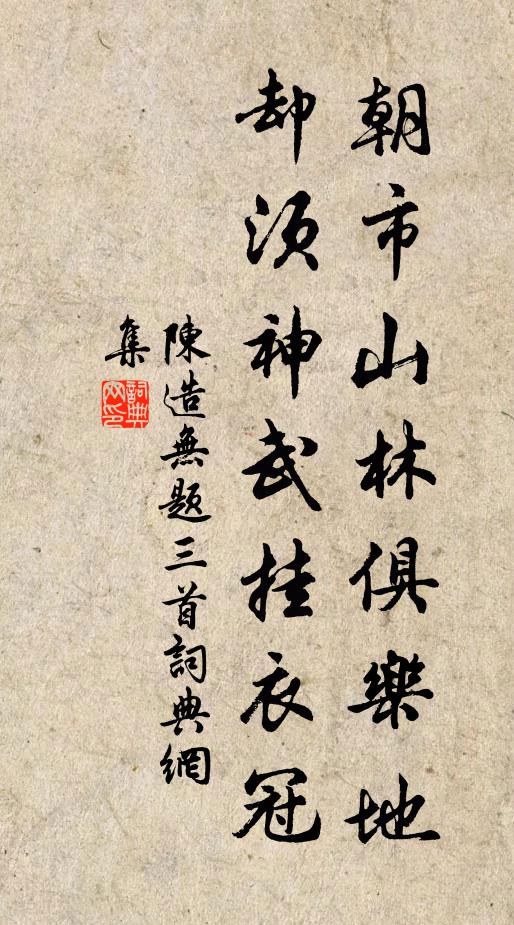 朝市山林俱樂地
却須神武挂衣冠
陳造無題三首詞典網
集
詞典網印